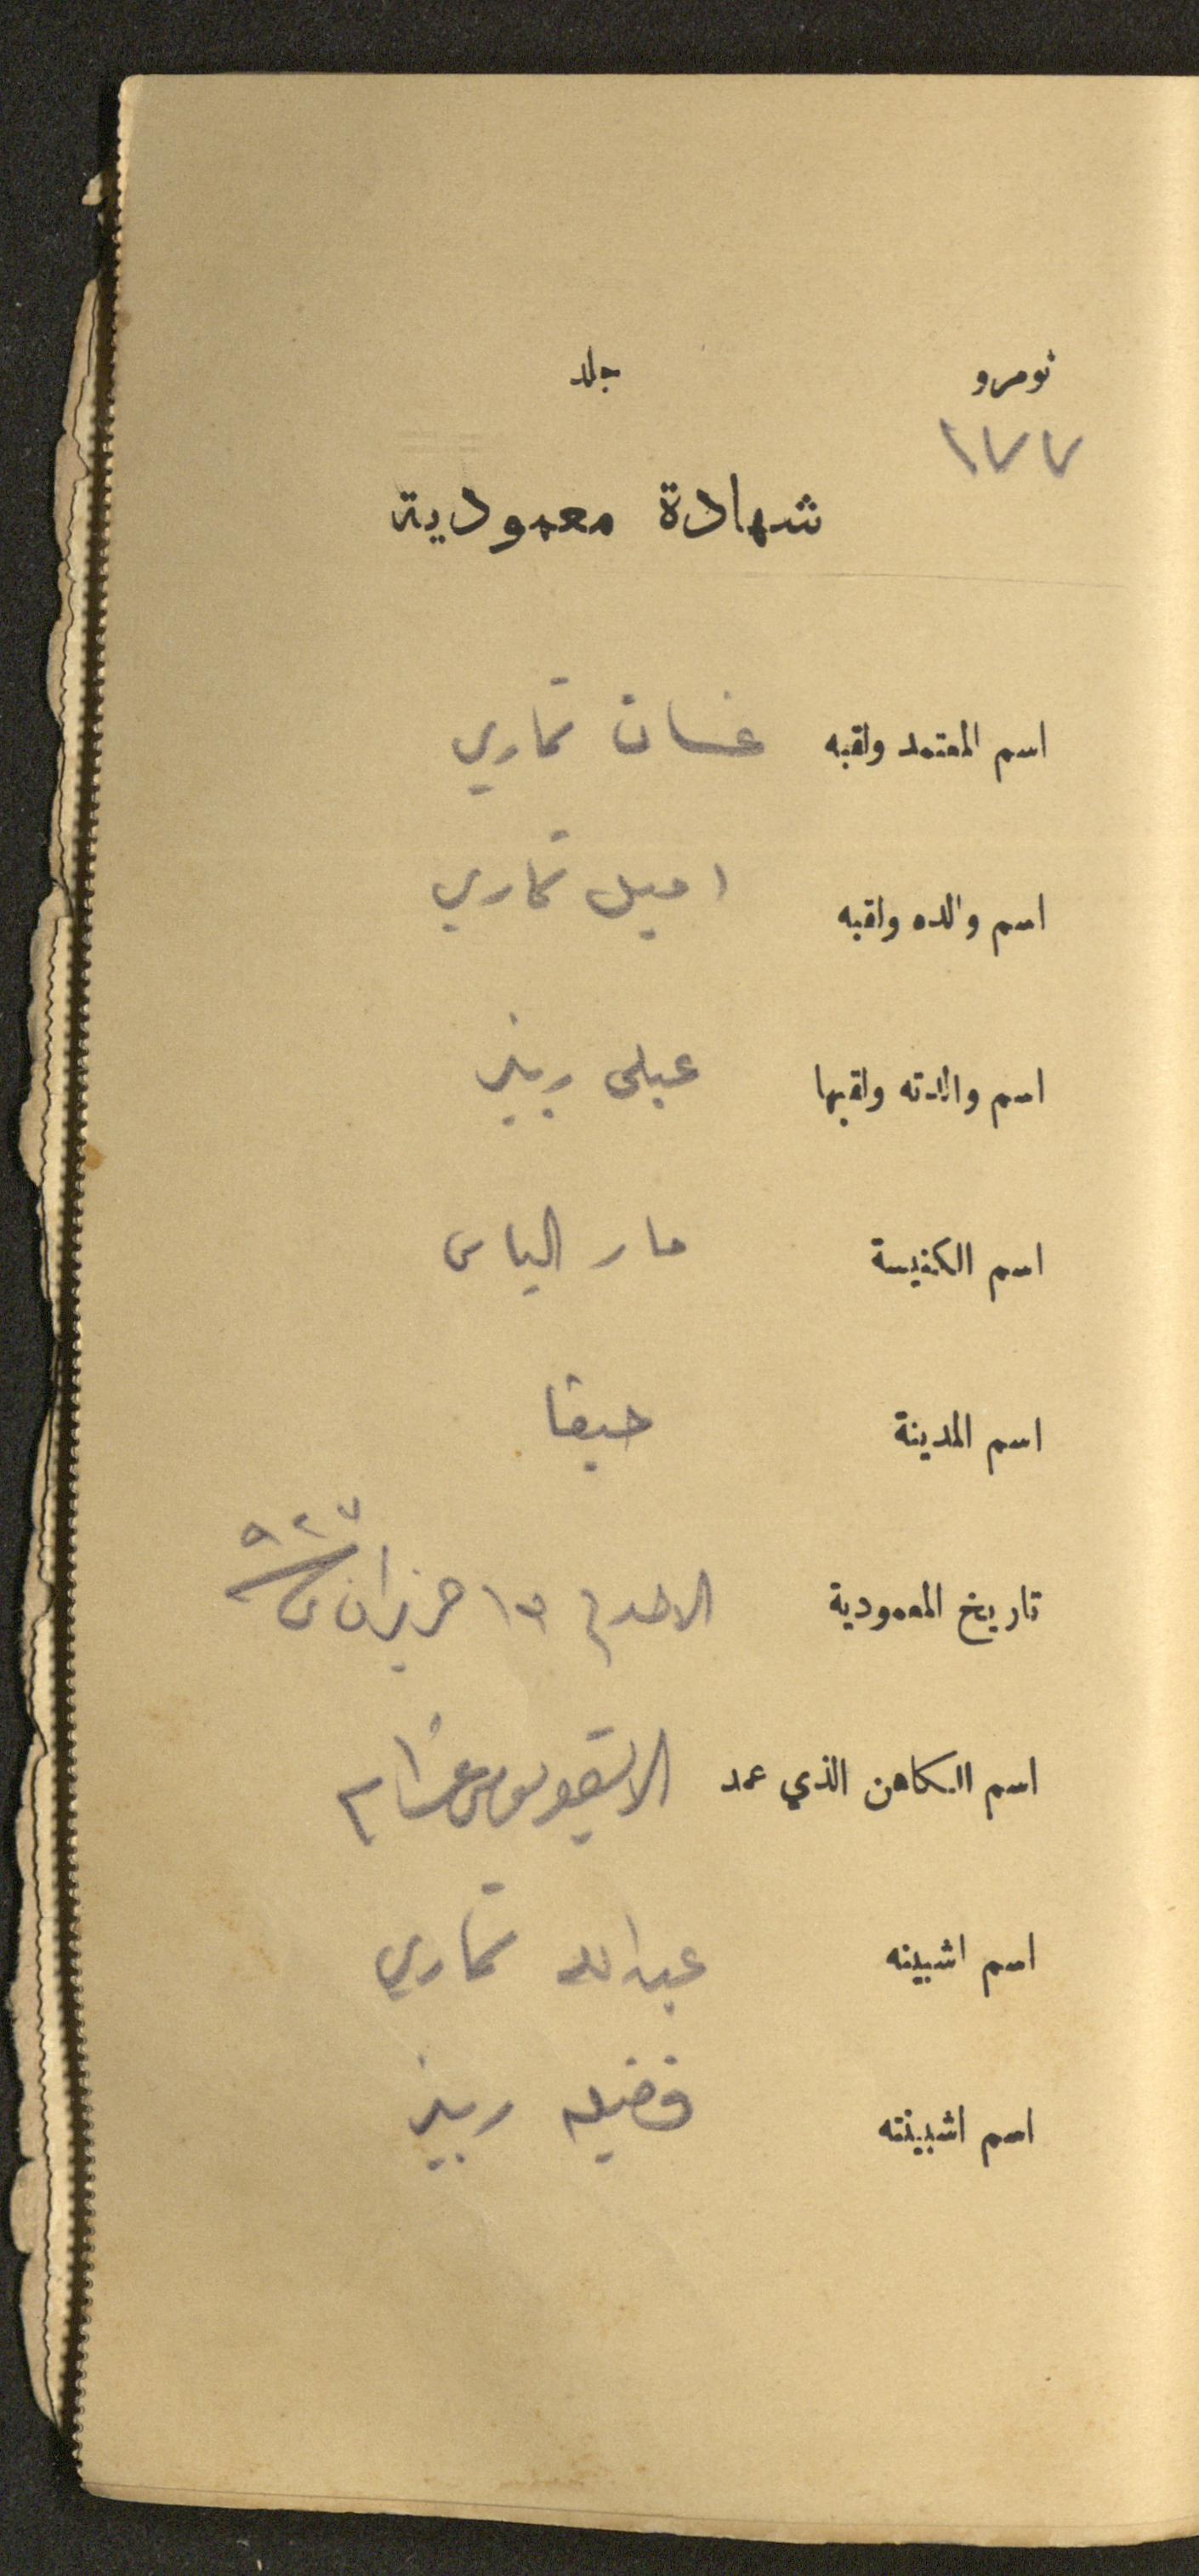 نومرو جلد
١٧٧
شهادة معمودية
اسم المعتمد ولقبه غسان تماري
اسم والده ولقبه اميل تماري
اسم والدته ولقبها عبلى ريز
اسم الكنيسة مار الياس
اسم المدينة حيفا
تاريخ المعمودية الاحد في حزيران ٩٢٧
اسم الكاهن الذي عمد
اسم اشبينه عبدالله تماري
اسم اشبينته فضيله ريز